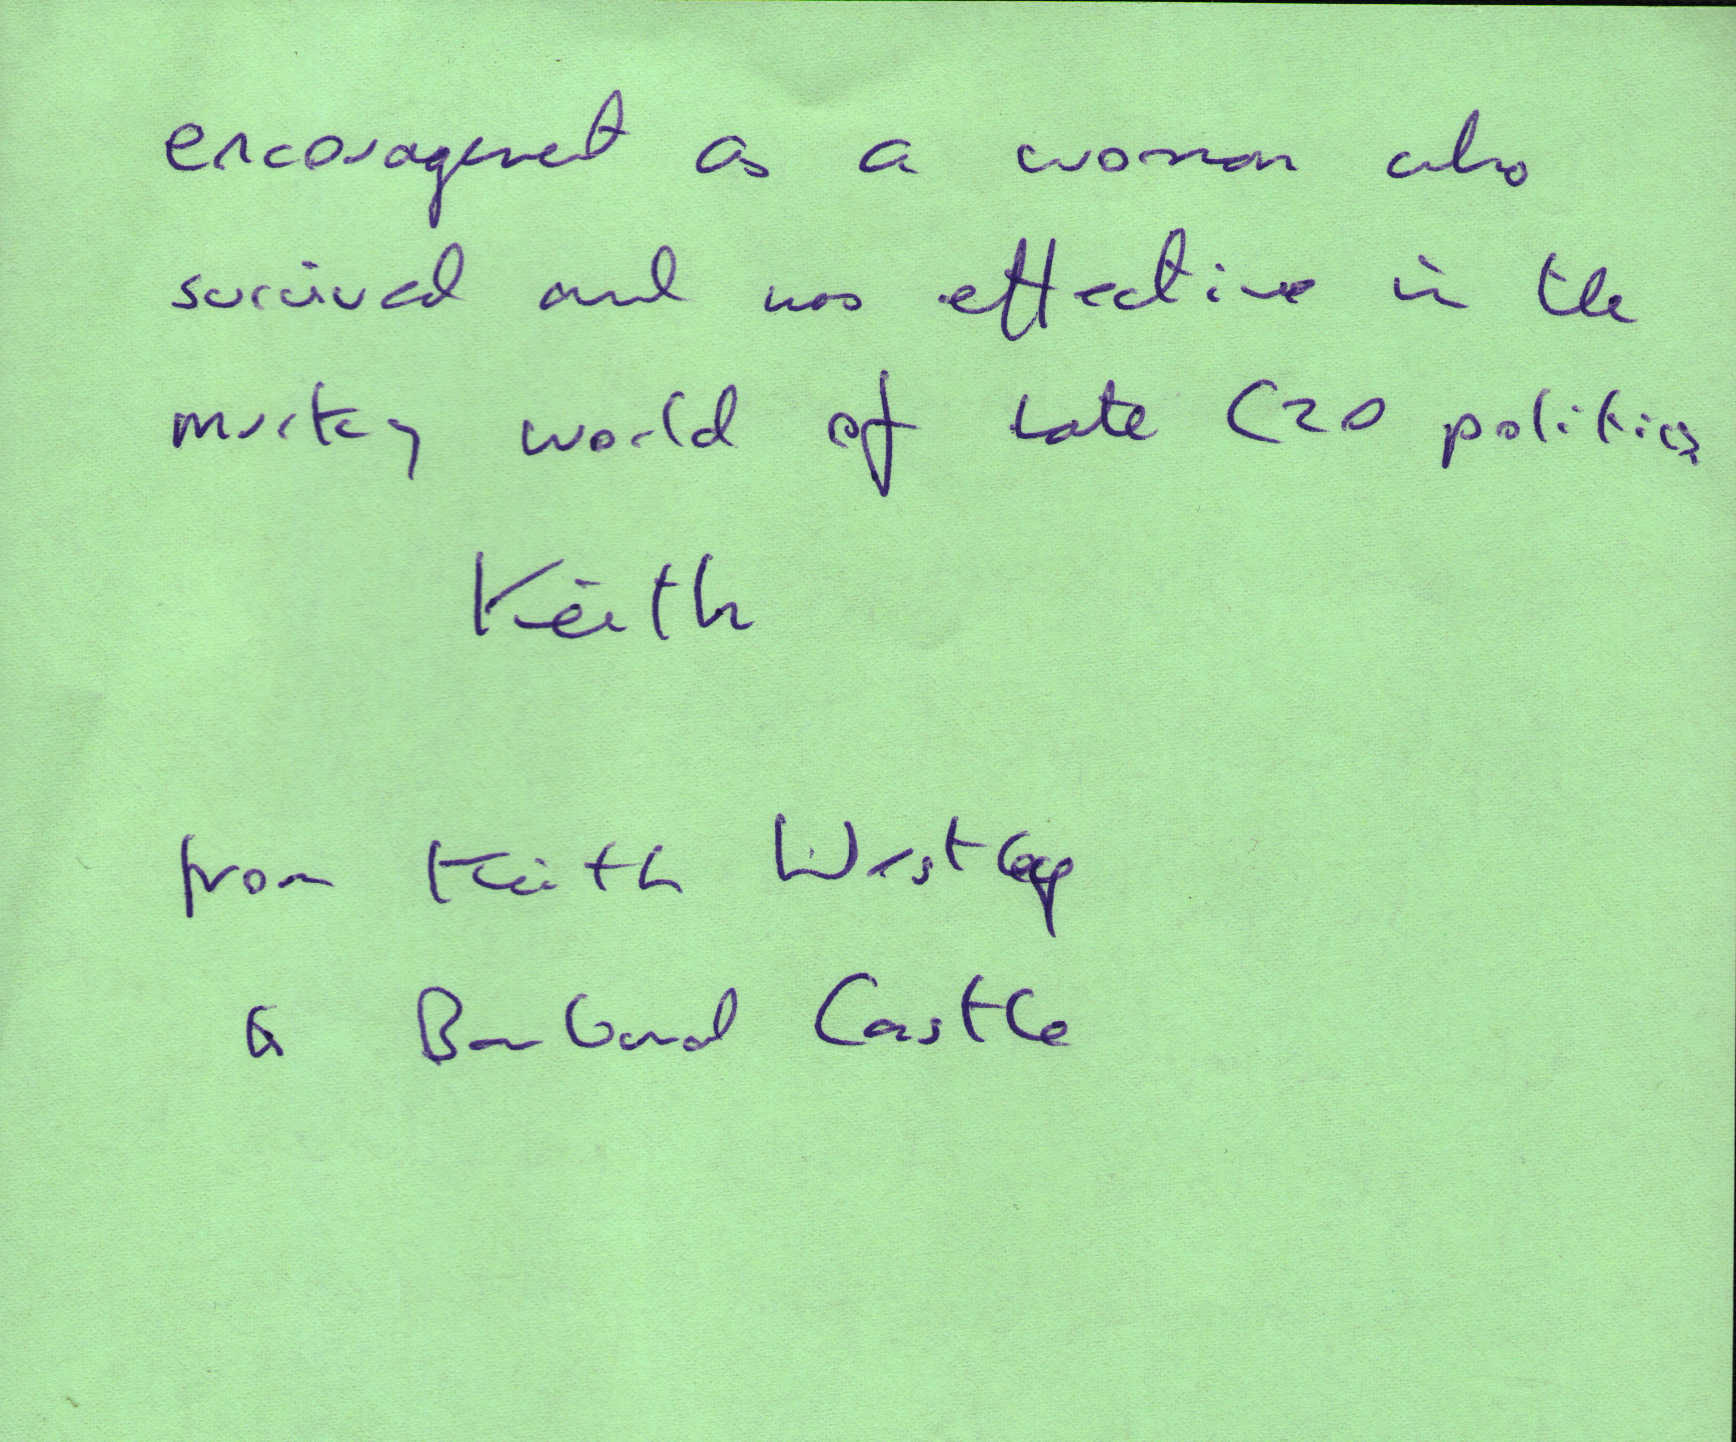 encouragement as a woman who
survived and was effective in the
murky world of late C20 politics
Keith
from Keith Westley
a Barbara Castle